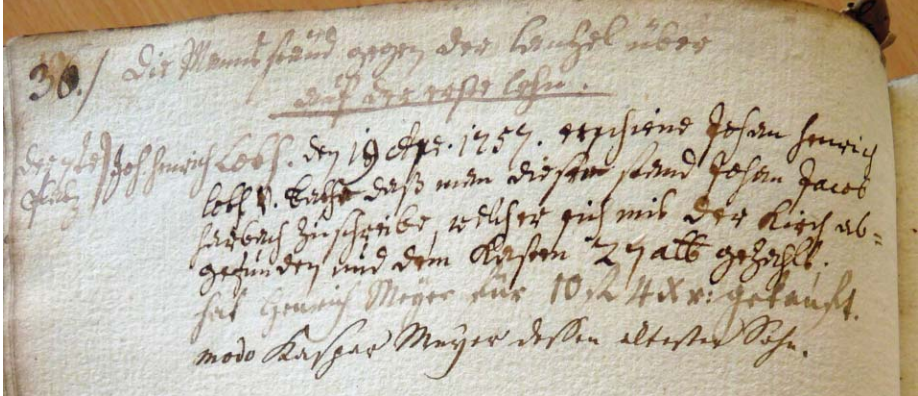 36./ Die Manns ständ gegen der Cantzel über
auf der erste lehn.
Der 1te) Joh. Henrich Loth. den 19 . 1757. erschiene Johan Henrich
Platz Loth daß man diesen stand Johan Jacob
Harbach zuschreibe, welcher sich mit der Kirch ab=
gefunden und dem Kasten 27 alb gezahlt.
hat Henrich Meyer für 10 fl 4 Xr: gekauft.
modo Kaspar Meyer dessen ältester Sohn.